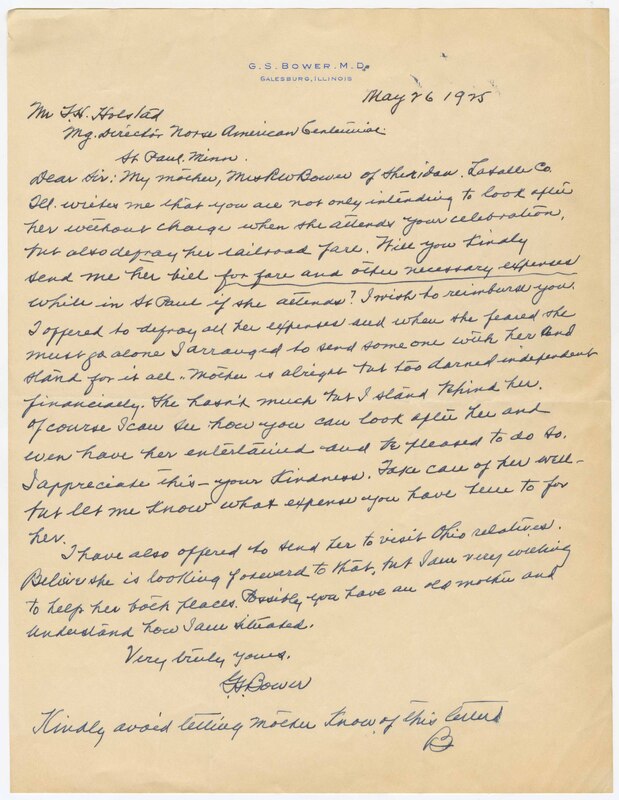 G. S. BOWER. M. D.
GALESBURG, ILLINOIS
May 26 1925
Mr J. H. Holstad
Mg. Director Norse American Centennial
St Paul, Minn.
Dear Sir: My mother, Mrs RW Bower of Sheridan. LaSalle Co.
Ill. writes me that you are not only intending to look after
her without charge when she attends your celebration,
but also defray her railroad fare. Will you kindly
send me her bill for fare and other necessary expenses
while in St Paul if she attends? I wish to reimburse you.
I offered to defray all her expenses and when she feared she
must go alone I arranged to send some one with her and
stand for it all. Mother is alright but too darned independent
financially. She hasn't much but I stand behind her.
Of course I can see how you can look after her and
even have her entertained and be pleased to do so.
I appreciate this - your kindness. Take care of her well -
but let me know what expense you have been to for
her.
I have also offered to send her to visit Ohio relatives.
Believe she is looking forward to that, but I am very willing
to help her both places. Possibly you have an old mother and
understand how I am situated.
Very truly yours.
GS Bower
Kindly avoid letting mother know of this letter
B